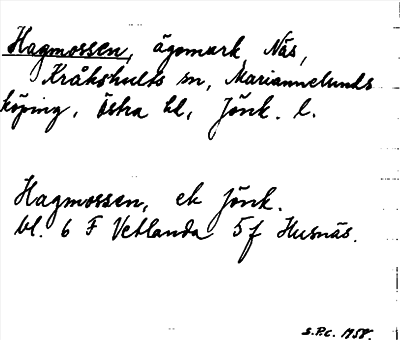 Hagmossen, ägomark, Näs,
Kråkshults sn, Mariannelunds
köping, Östra hd, Jönk. l.
Hagmossen, ek Jönk.
bl. 6 F Vetlanda 5f Husnäs.
S.P.C. 1958.